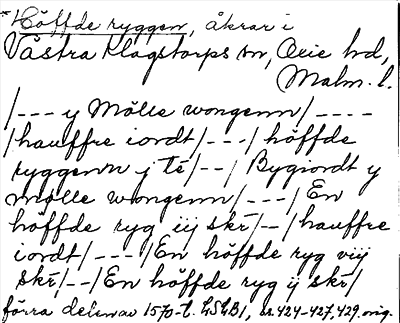 *Höffde ryggen, åkrar i
Västra Klagstorps sn, Oxie hd,
Malm. l.
/--- y Mölle wongenn/----
/hauffre iordt/---/höffde
ryggenn j té/--/Bygiordt y
mölle wongenn/---/En
höffde ryg iij skr/--/hauffre
iordt/---/En höffde ryg viij
skr/--/En höffde ryg ij skr/
förra delen av 1570-t. LSLB1, ss. 424-427, 429. orig.